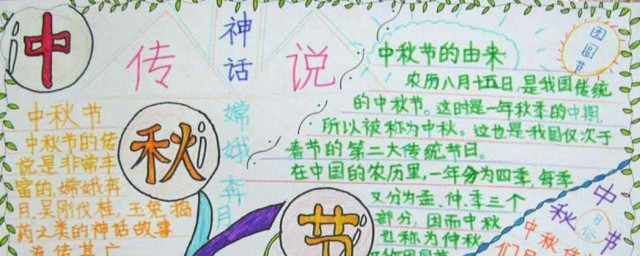 中
秋
节
神话
传说
嫦娥奔月
中秋节
中秋节的传
说是非常丰
富的,嫦娥奔
月,吴刚伐桂,玉兔捣
药之类的神话故事
流传甚广
中秋节的由来
农历八月十五日,是我国传统
的中秋节。这时是一年秋季的中期,
所以被称为中秋。这也是我国仅次于
春节的第二大传统节日。
在中国的农历里,一年分为四季,每季
又分为孟、仲、季三个
部分,因而中秋
也称为仲秋
团圆节
中秋节
习俗
中秋佳